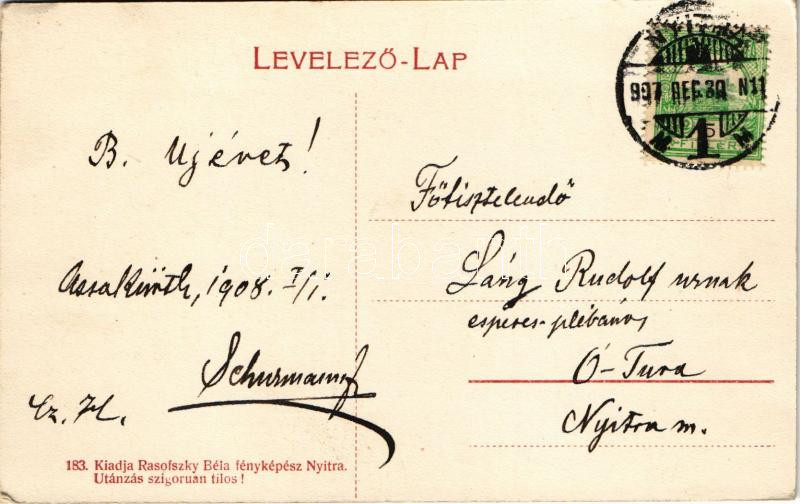 LEVELEZŐ-LAP
NYITRA
907 DEC. 30. N11
1
5
FILLÉR
B. Ujévet!
Assakürth, 1908. I/1.
Schurmann
Főtisztelendő
Láng Rudolf urnak
esperes-plébános
Ó-Tura
Nyitra m.
183. Kiadja Rasofszky Béla fényképész Nyitra.
Utánzás szigoruan tilos!
darabanth